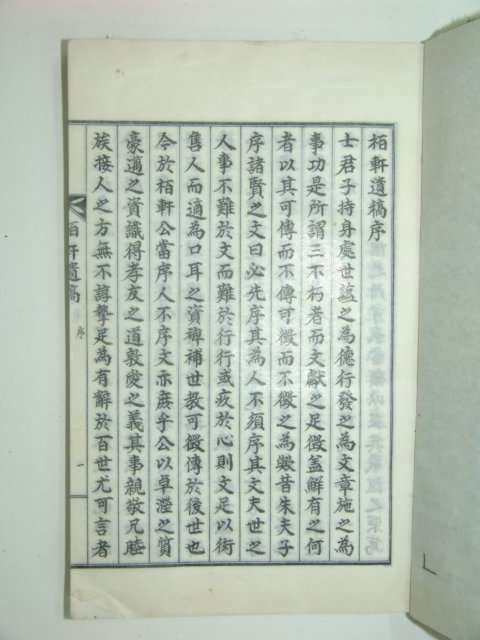 栢軒遺稿序
士君子持身處世蘊之為德行發之為文章施之為
事功是所謂三不朽者而文獻之足徵盖鮮有之何
者以其可傳而不傳可徵而不徵之為歎昔朱夫子
序諸賢之文曰必先序其為人不須序其文夫世之
人事不難於文而難於行行或疚於心則文足以衒
售人而適為口耳之資稗補世教可徵傳於後世也
今於栢軒公當序人不序文亦庶乎公以卓犖之質
豪邁之資識得孝友之道敦愛之義其事親敬兄睦
族接人之方無不諄摯足為有辭於百世尤可言者
栢軒遺稿
序
一